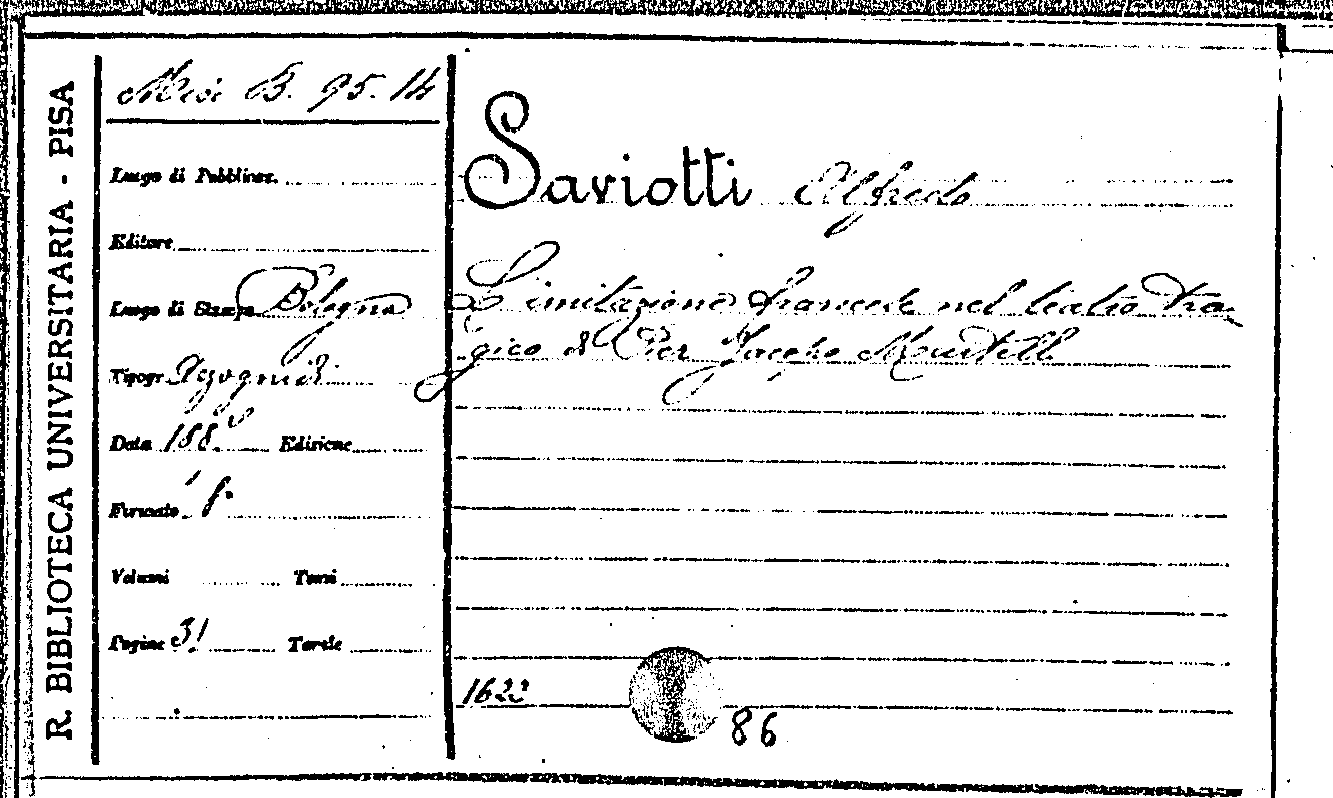 R. BIBLIOTECA UNIVERSITARIA - PISA
Misc. B. 95. 14
Luogo di Pubblicaz.
Editore
Luogo di Stampa Bologna
Tipogr. Azzoguidi
Data 188
Edizione
Formato 8°
Volumi
Tomi
Pagine 31
Tavole
Saviotti Alfredo
L'imitazione francese nel teatro tra-
gico di Pier Jacopo Martelli
1622
86